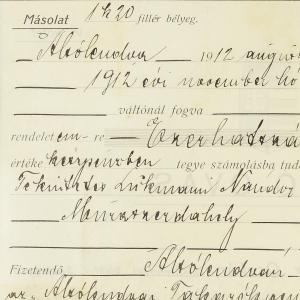 Másolat 1 K 20 fillér bélyeg.
Alsólendva 1912 augus
1912 évi november hó
váltónál fogva
rendelet em- re Ezerhatszá
értéke készpénzben tegye számolásba tud
Tekintetes Lükmann Nándor
Muraszerdahely
Fizetendő Alsólendván
az „Alsólendvai Takarékpén